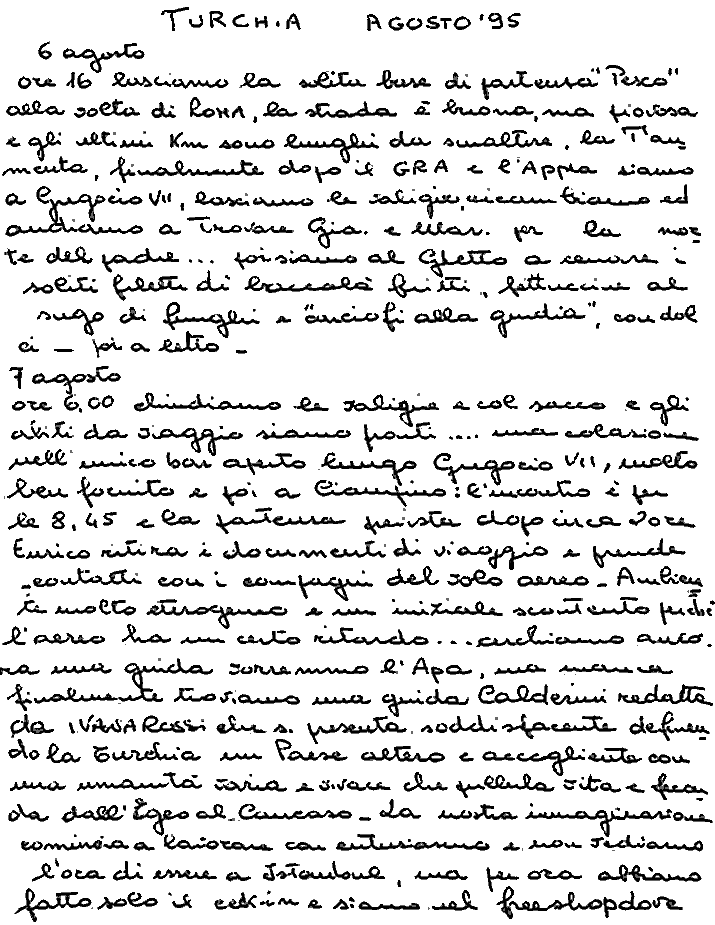 TURCHIA AGOSTO '95
6 agosto
ore 16 lasciamo la solita base di partenza "Pesco"
alla volta di ROMA, la strada è buona, ma piovosa
e gli ultimi Km sono lunghi da smaltire, la Tau
menta, finalmente dopo il GRA e l'Appia siamo
a Gregorio VII, lasciamo le valigie, ci cambiamo ed
andiamo a Trovare Gia. e Mar. per la mor
te del padre... poi siamo al Ghetto a cenare i
soliti filetti di baccalà fritti, fettuccine al
sugo di funghi e "carciofi alla giudia", con dol
ci - poi a letto -
7 agosto
ore 6,00 chiudiamo le valigie e col sacco e gli
abiti da viaggio siamo pronti .... una colazione
nell'unico bar aperto lungo Gregorio VII, molto
ben fornito e poi a Ciampino: l'incontro è per
le 8,45 e la partenza prevista dopo circa 2 ore
Enrico ritira i documenti di viaggio e prende
contatti con i compagni del volo aereo - Ambien
te molto eterogeneo e un iniziale scontento perché
l'aereo ha un certo ritardo... cerchiamo anco.
ra una guida vorremmo l'Apa, ma manca
finalmente troviamo una guida Calderini redatta
da IVANA ROSSI che si presenta soddisfacente definen
do la Turchia un Paese altero e accogliente con
una umanità varia e vivace che pullula vita e
da dall'Egeo al Caucaso - La nostra immaginazione
comincia a lavorare con entusiasmo e non vediamo
l'ora di essere a Istanbul, ma per ora abbiamo
fatto solo il cekin e siamo nel freeshop dove